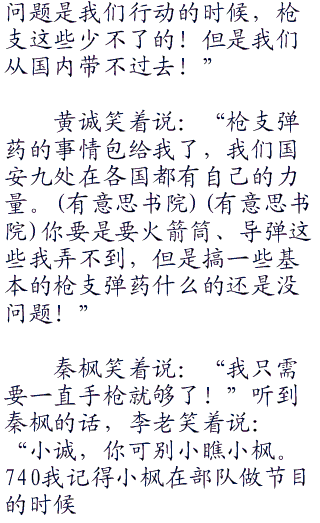 问题是我们行动的时候，枪
支这些少不了的！但是我们
从国内带不过去！”
黄诚笑着说：“枪支弹
药的事情包给我了，我们国
安九处在各国都有自己的力
量。(有意思书院)(有意思书
院)你要是要火箭筒、导弹这
些我弄不到，但是搞一些基
本的枪支弹药什么的还是没
问题！”
秦枫笑着说：“我只需
要一直手枪就够了！”听到
秦枫的话，李老笑着说：
“小诚，你可别小瞧小枫。
740我记得小枫在部队做节目
的时候